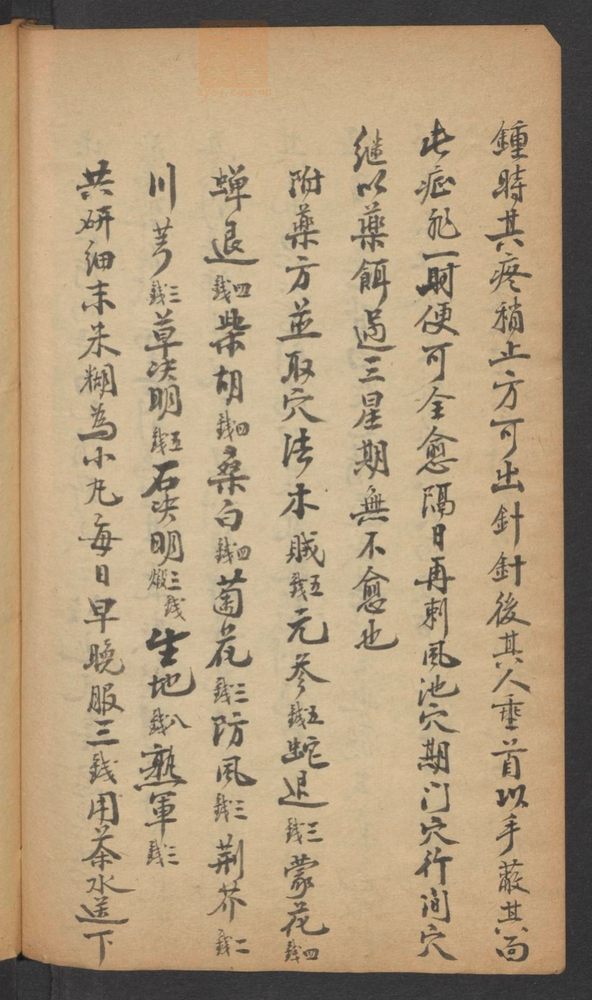 鍾時其疼稍止方可出針針後其人垂首以手蔽其面
此症形一時便可全愈隔日再刺風池穴期门穴行间穴
繼以藥餌過三星期無不愈也
附藥方並取穴法木賊五錢元參五錢蛇退三錢蒙花四錢
蟬退四錢柴胡四錢桑白四錢菊花三錢防風三錢荆芥二錢
川芎三錢草决明五錢石决明煅三錢生地八錢熟軍三錢
共研细末米糊為小丸每日早晚服三錢用茶水送下